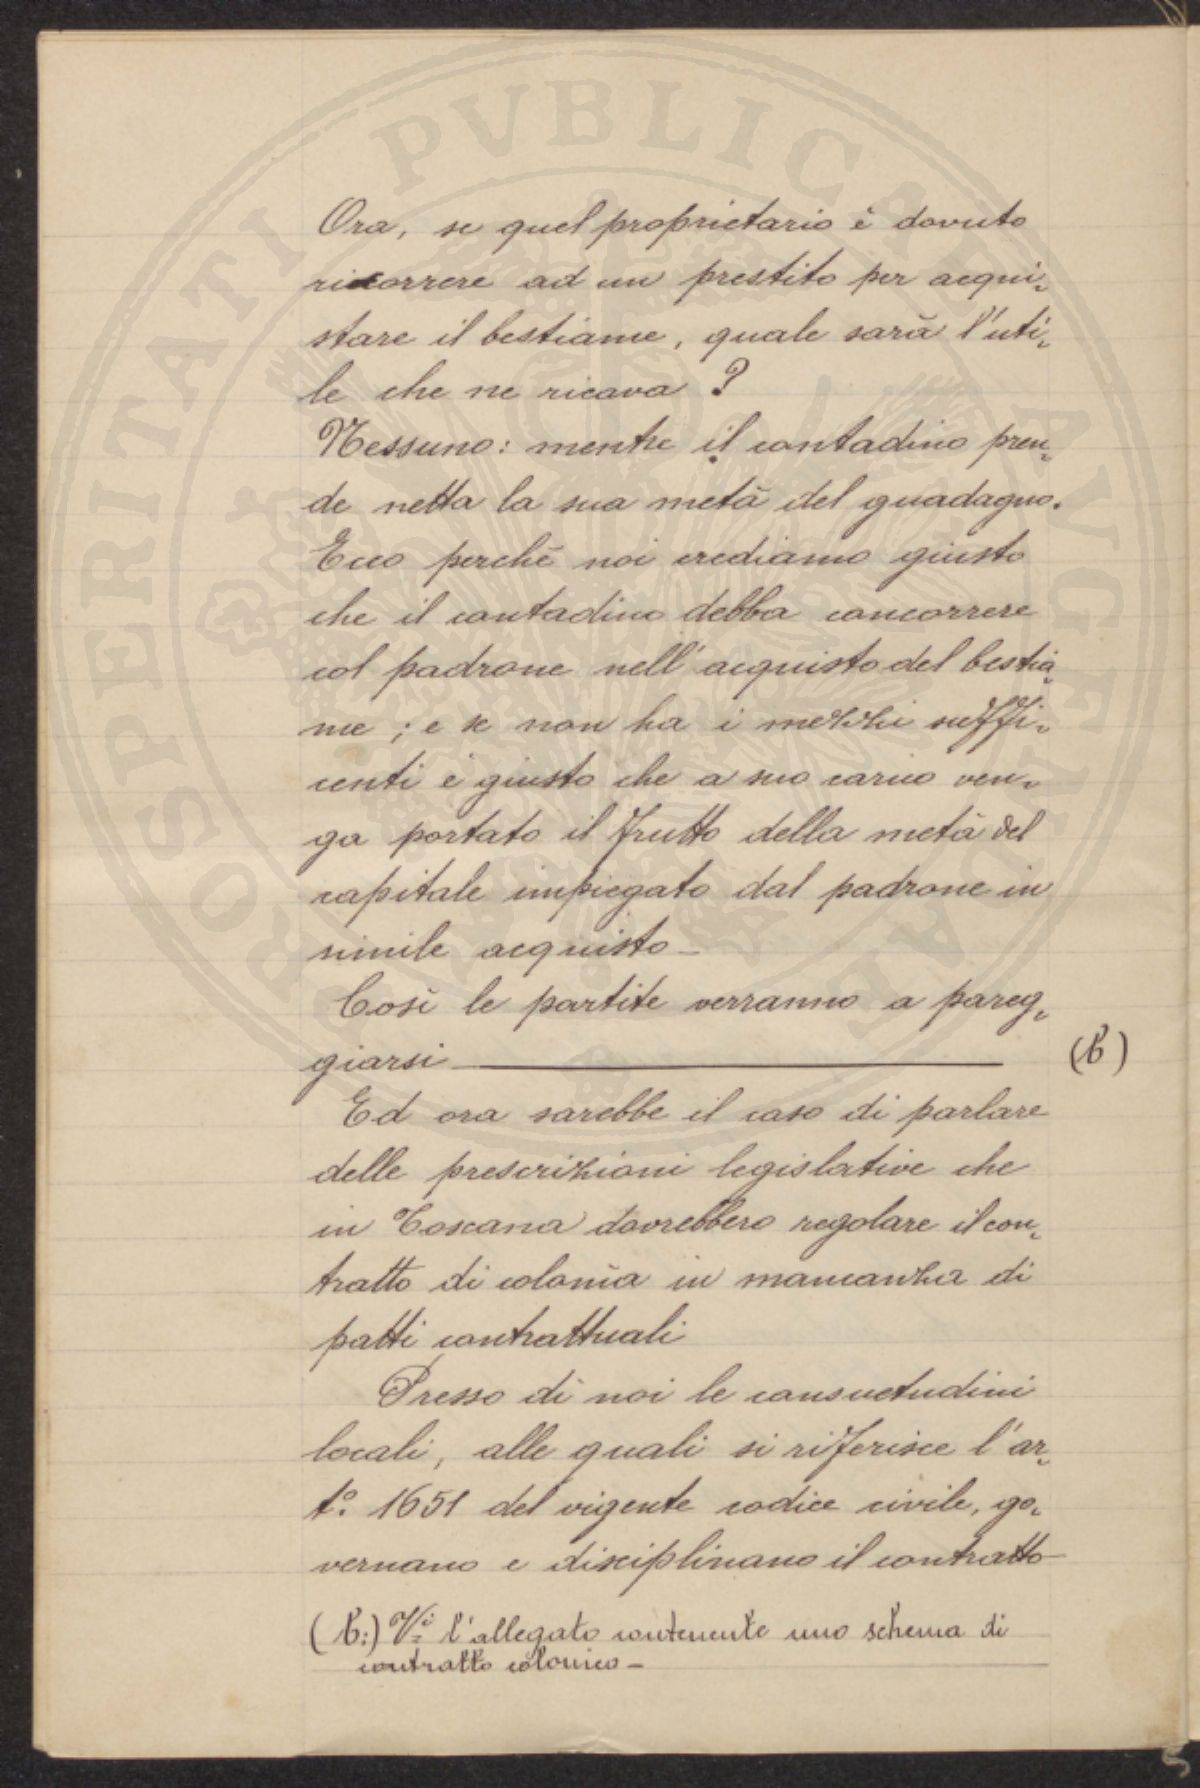 PROSPERITATI PVBLICAE AVGENDAE
Ora, se quel proprietario è dovuto
ricorrere ad un prestito per acqui-
stare il bestiame, quale sarà l'uti-
le che ne ricava?
Nessuno: mentre il contadino pren-
de netta la sua metà del guadagno.
Ecco perchè noi crediamo giusto
che il contadino debba concorrere
col padrone nell'acquisto del bestia-
me; e se non ha i mezzi suffi-
centi è giusto che a suo carico ven-
ga portato il frutto della metà del
capitale impiegato dal padrone in
simile acquisto_
Così le partite verranno a pareg-
giarsi ___ (b)
Ed ora sarebbe il caso di parlare
delle prescrizioni legislative che
in Toscana dovrebbero regolare il con-
tratto di colonìa in mancanza di
patti contrattuali
Presso di noi le consuetudini
locali, alle quali si riferisce l'ar-
t.º 1651 del vigente codice civile, go-
vernano e disciplinano il contratto
(b:) Vi. l'allegato contenente uno schema di
contratto colonico_